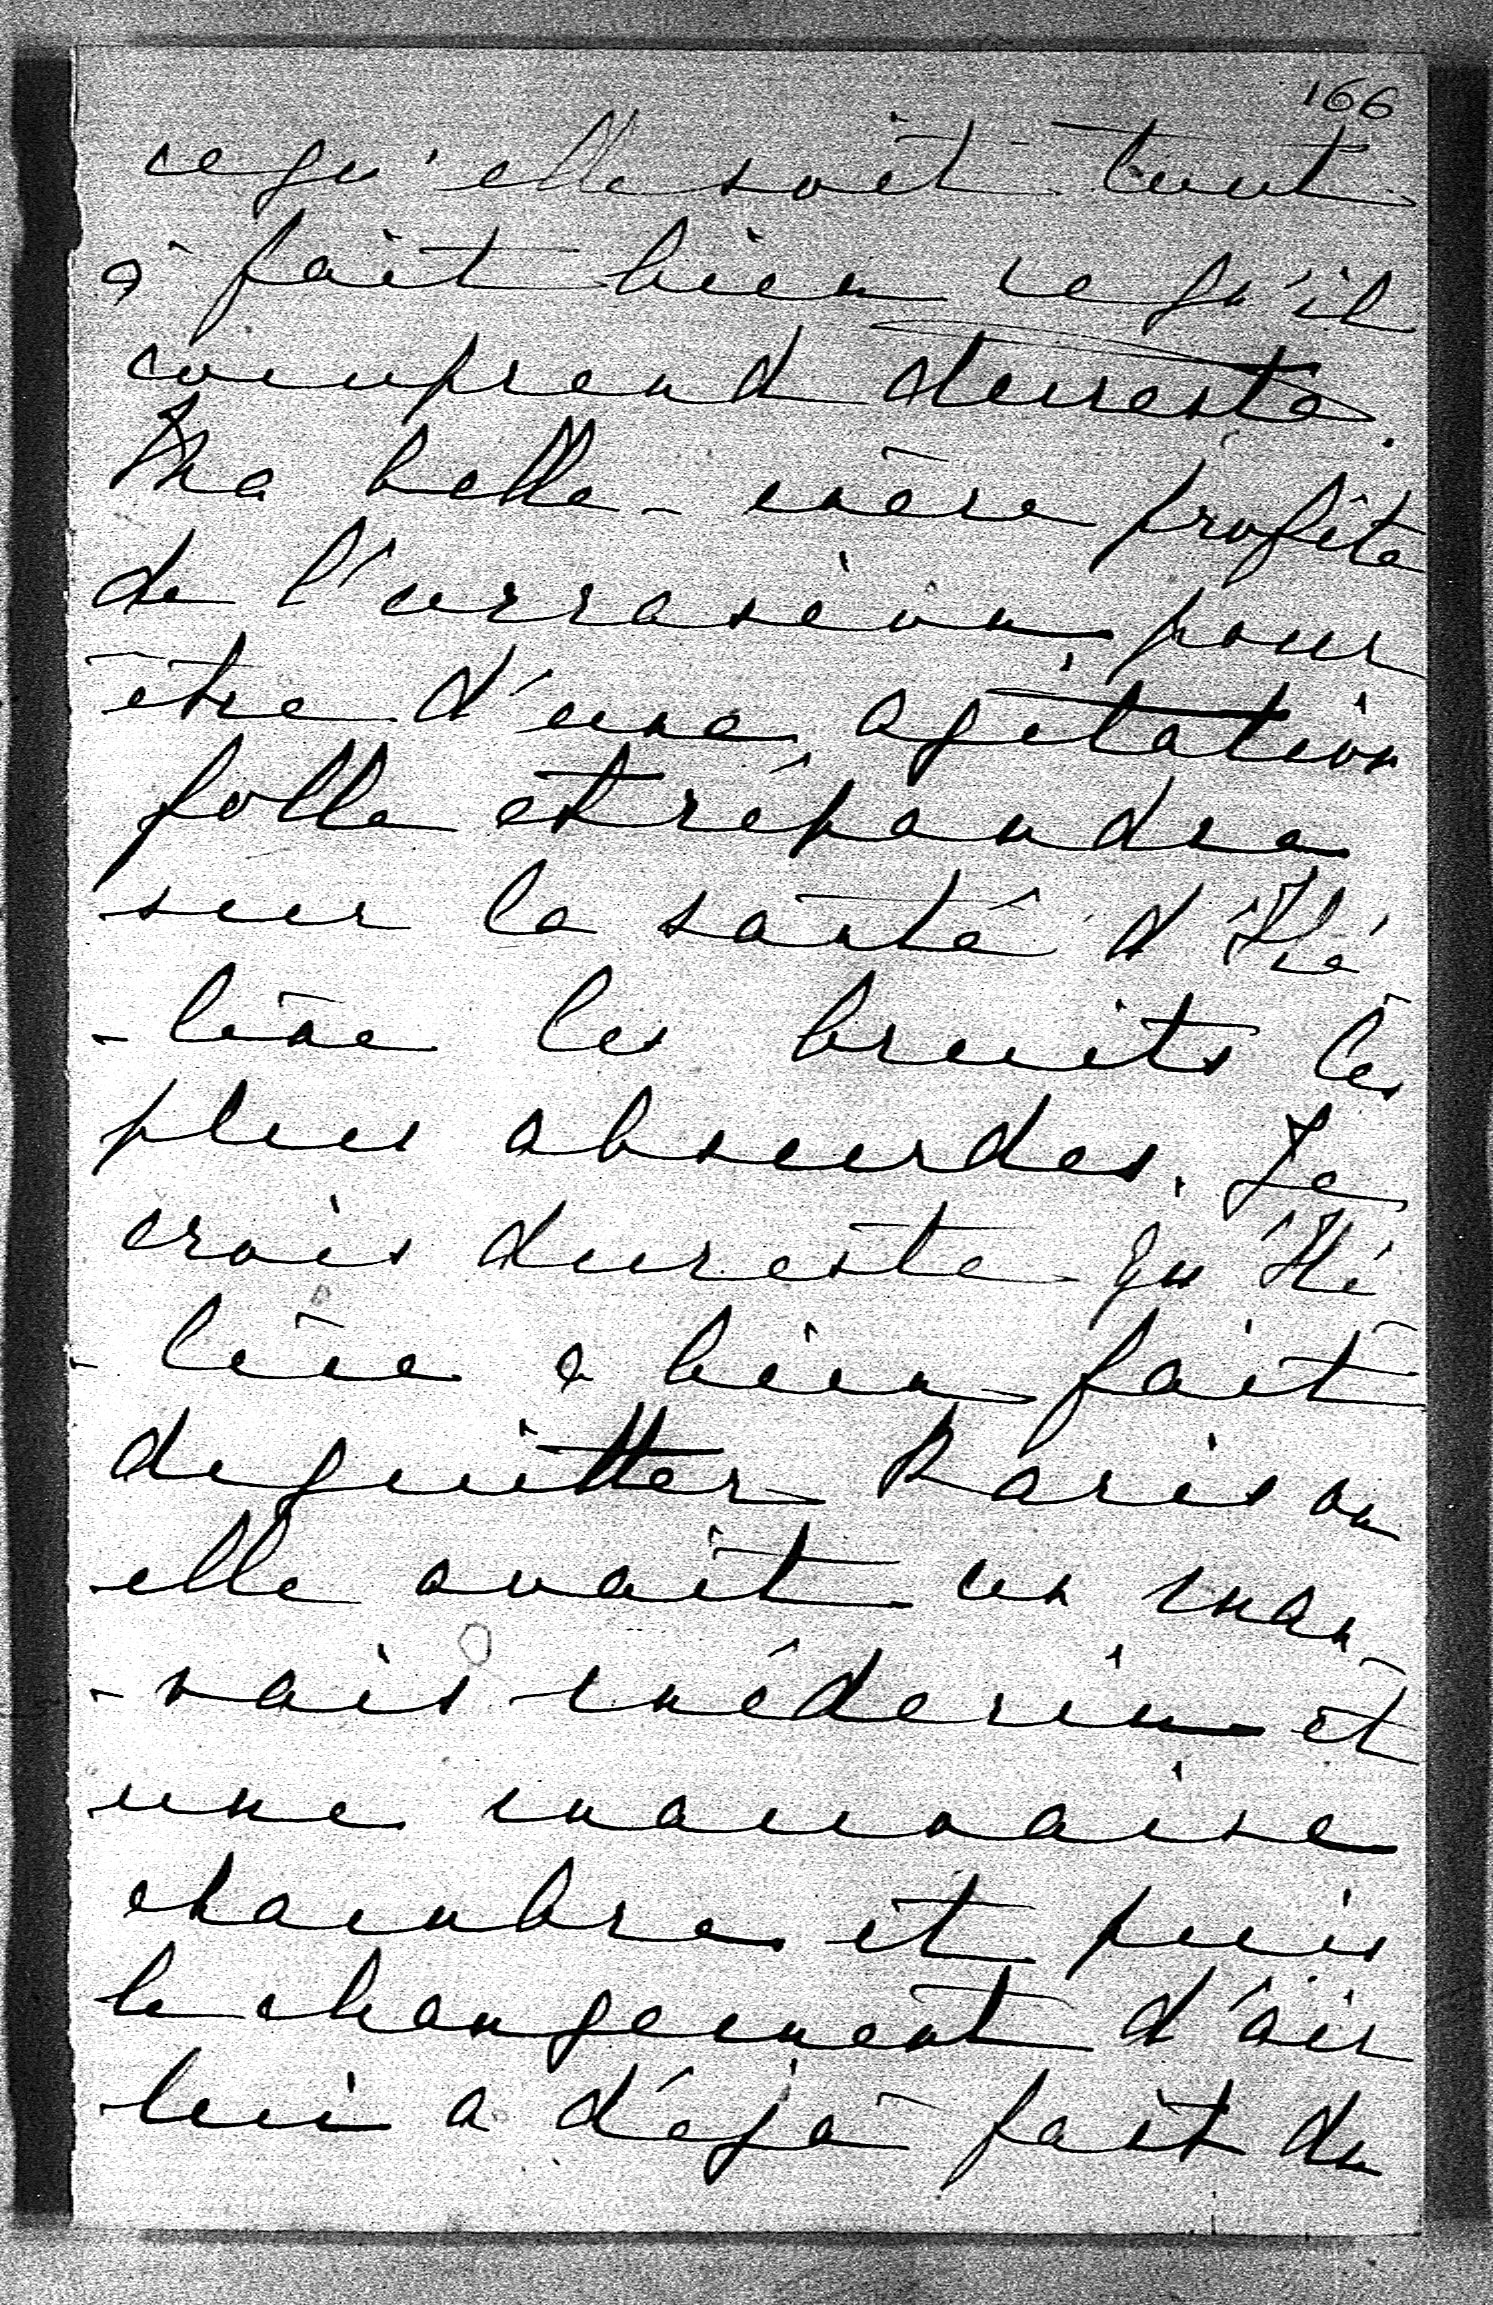 166
ce qu'elle soit tout
à fait bien ce qu'il
comprend dureste.
Ma belle-mère profite
de l'occasion pour
être d'une agitation
folle et répandre
sur la santé d'Hé
-lène les bruits les
plus absurdes. Je
crois dureste qu'Hé
-lène a bien fait
de quitter Paris où
elle avait un mau
-vais médecin et
une mauvaise
chambre et puis
le changement d'air
lui a déjà fait du